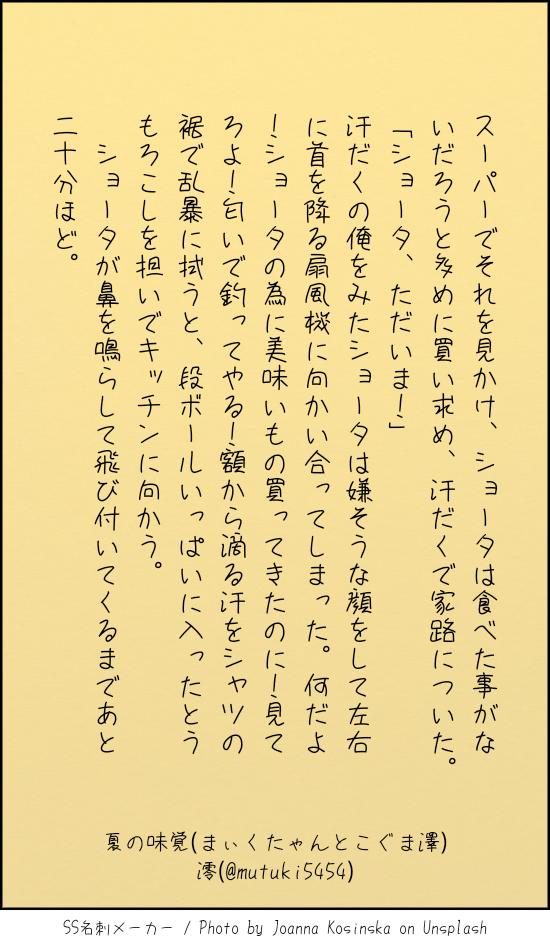 スーパーでそれを見かけ、ショータは食べた事がな
いだろうと多めに買い求め、汗だくで家路についた。
「ショータ、ただいまー！」
汗だくの俺をみたショータは嫌そうな顔をして左右
に首を降る扇風機に向かい合ってしまった。何だよ
！ショータの為に美味いもの買ってきたのに！見て
ろよ！匂いで釣ってやる！額から滴る汗をシャツの
裾で乱暴に拭うと、段ボールいっぱいに入ったとう
もろこしを担いでキッチンに向かう。
ショータが鼻を鳴らして飛び付いてくるまであと
二十分ほど。
夏の味覚(まぃくたゃんとこぐま澤)
澪(@mutuki5454)
SS名刺メーカー / Photo by Joanna Kosinska on Unsplash